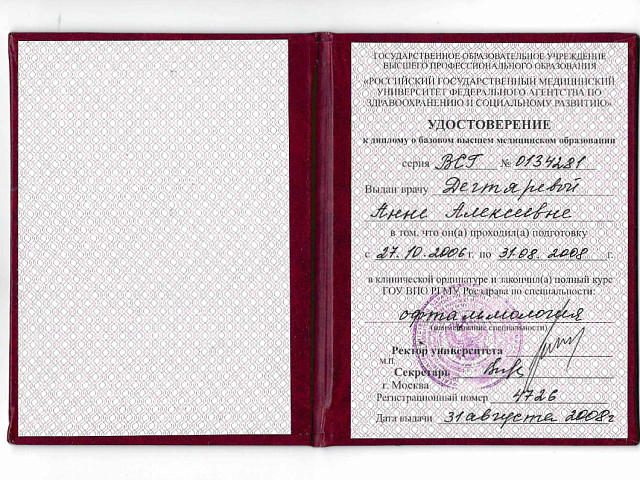 ГОСУДАРСТВЕННОЕ ОБРАЗОВАТЕЛЬНОЕ УЧРЕЖДЕНИЕ
ВЫСШЕГО ПРОФЕССИОНАЛЬНОГО ОБРАЗОВАНИЯ
«РОССИЙСКИЙ ГОСУДАРСТВЕННЫЙ МЕДИЦИНСКИЙ
УНИВЕРСИТЕТ ФЕДЕРАЛЬНОГО АГЕНТСТВА ПО
ЗДРАВООХРАНЕНИЮ И СОЦИАЛЬНОМУ РАЗВИТИЮ»
УДОСТОВЕРЕНИЕ
к диплому о базовом высшем медицинском образовании
серия ВСГ № 0134281
Выдан врачу Дегтяревой
Анне Алексеевне
в том, что он(а) проходил(а) подготовку
с 27.10.2006 г. по 31.08.2008 г.
в клинической ординатуре и закончил(а) полный курс
ГОУ ВПО РГМУ Росздрава по специальности:
офтальмология
(наименование специальности)
Ректор университета
М.П.
Секретарь
г. Москва
Регистрационный номер 4726
Дата выдачи 31 августа 2008г